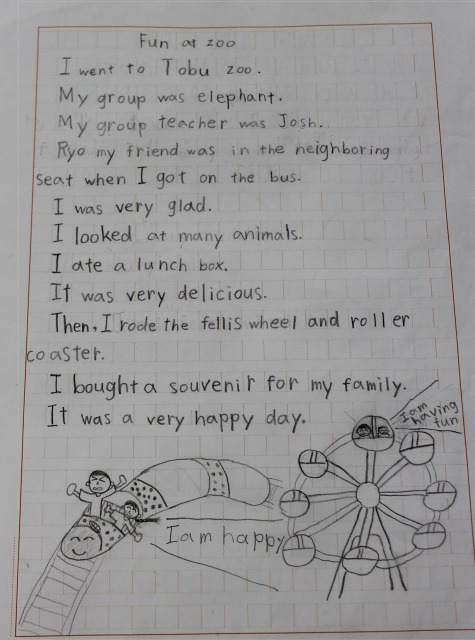 Fun at zoo
I went to Tobu zoo.
My group was elephant.
My group teacher was Josh.
Ryo my friend was in the neighboring
seat when I got on the bus.
I was very glad.
I looked at many animals.
I ate a lunch box.
It was very delicious.
Then, I rode the fellis wheel and roller
coaster.
I bought a souvenir for my family.
It was a very happy day.
I am
having
fun
I am happy